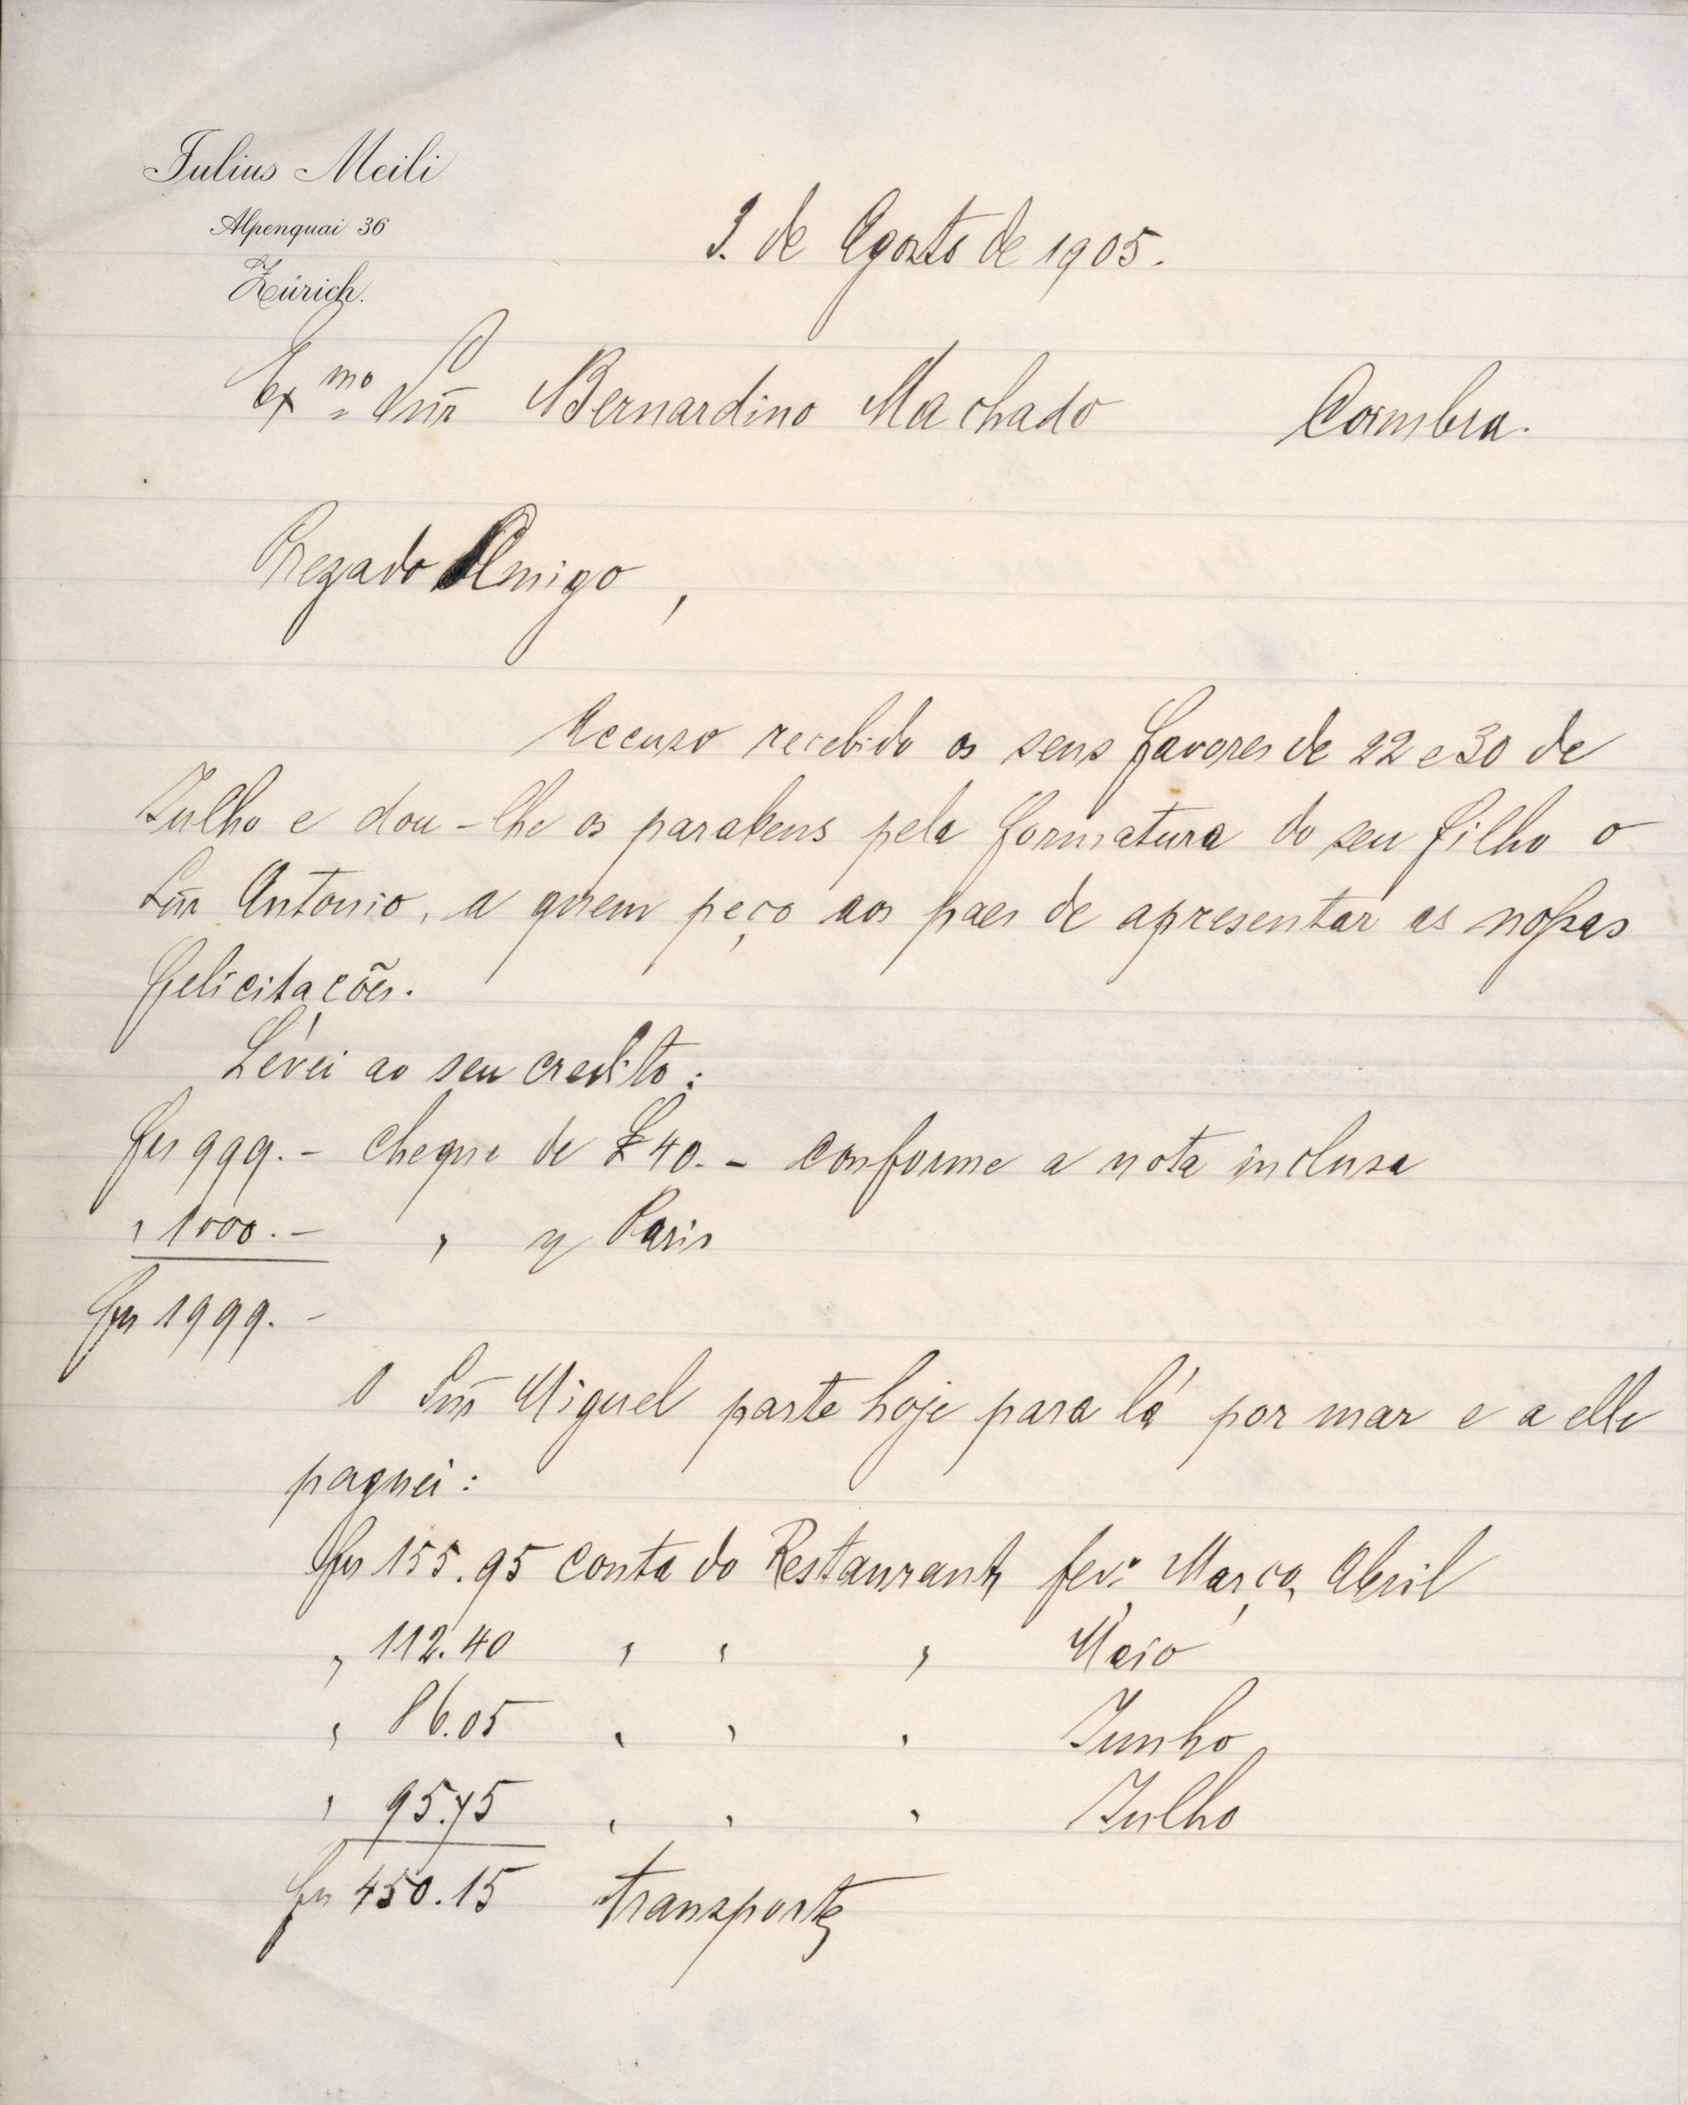 Julius Meili
Alpenquai 36
Zürich.
3. de Agosto de 1905.
Exmo Snr Bernardino Machado Coimbra.
Prezado Amigo,
Accuso recebido os seus favores de 22 e 30 de
Julho e dou-lhe os parabens pela formatura do seu filho o
Snr Antonio, a quem peço aos paes de apresentar as nossas
felicitações.
Levei ao seu credito:
frs 999.- cheque de £ 40.- conforme a nota inclusa
" 1000.- " Paris
frs 1999.-
O Snr Miguel parte hoje para lá por mar e a elle
paguei:
frs 155.95 conta do Restaurant, fevo, Março, Abril
" 112.40 " " " Maio
" 86.05 " " " Junho
" 95.75 " " " Julho
frs 450.15 transporte